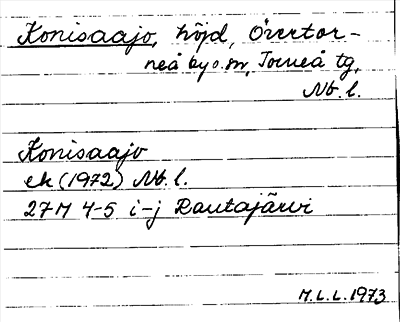 Konisaajo, höjd, Övertor-
neå by o. sn, Torneå tg,
Nb. l.
Konisaajo
ek (1972) Nb. l.
27M 4-5 i-j Rautajärvi
M.L.L. 1973